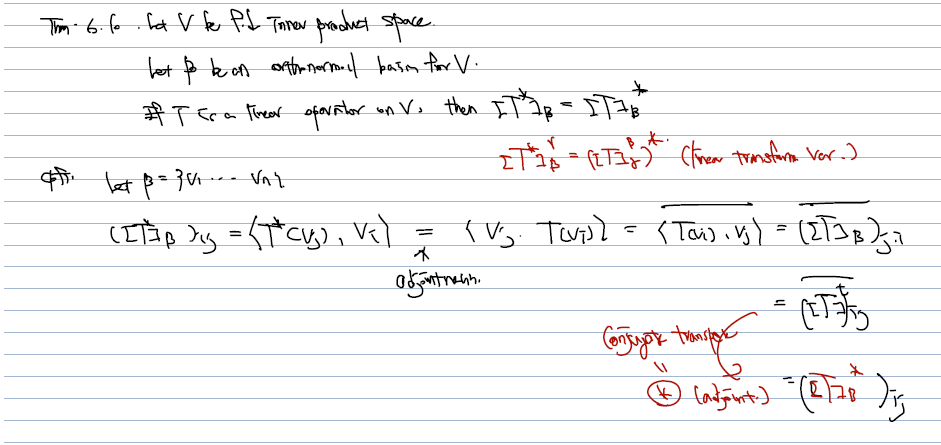 Thm. 6.10. Let V be f.d inner product space.
Let β be an orthonormal basis for V.
If T is a linear operator on V, then [T*]_β = [T]_β*
[T*]_β^γ = ([T]_γ^β)* (linear transform ver.)
pf). Let β = {v₁ ... vₙ}
([T*]_β)_ij = ⟨T*(v_j), v_i⟩ = ⟨v_j, T(v_i)⟩ = \overline{⟨T(v_i), v_j⟩} = \overline{([T]_β)_ji}
*
= \overline{([T]^t)_ij}
Conjugate transpose
"
(*) (adjoint.) = ([T]_β*)_ij